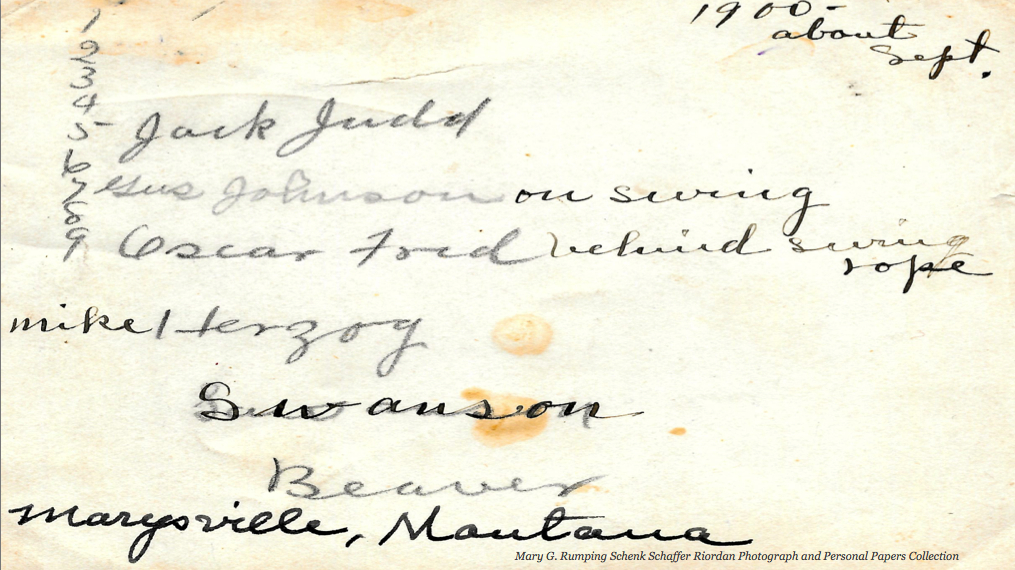 1900-
about
Sept.
1
2
3
4
5
6
7
8
9
Jack Judd
Gus Johnson on swing
Oscar Fred behind swing
rope
mike Herzog
Swanson
Beaver
Marysville, Montana
Mary G. Rumping Schenk Schaffer Riordan Photograph and Personal Papers Collection